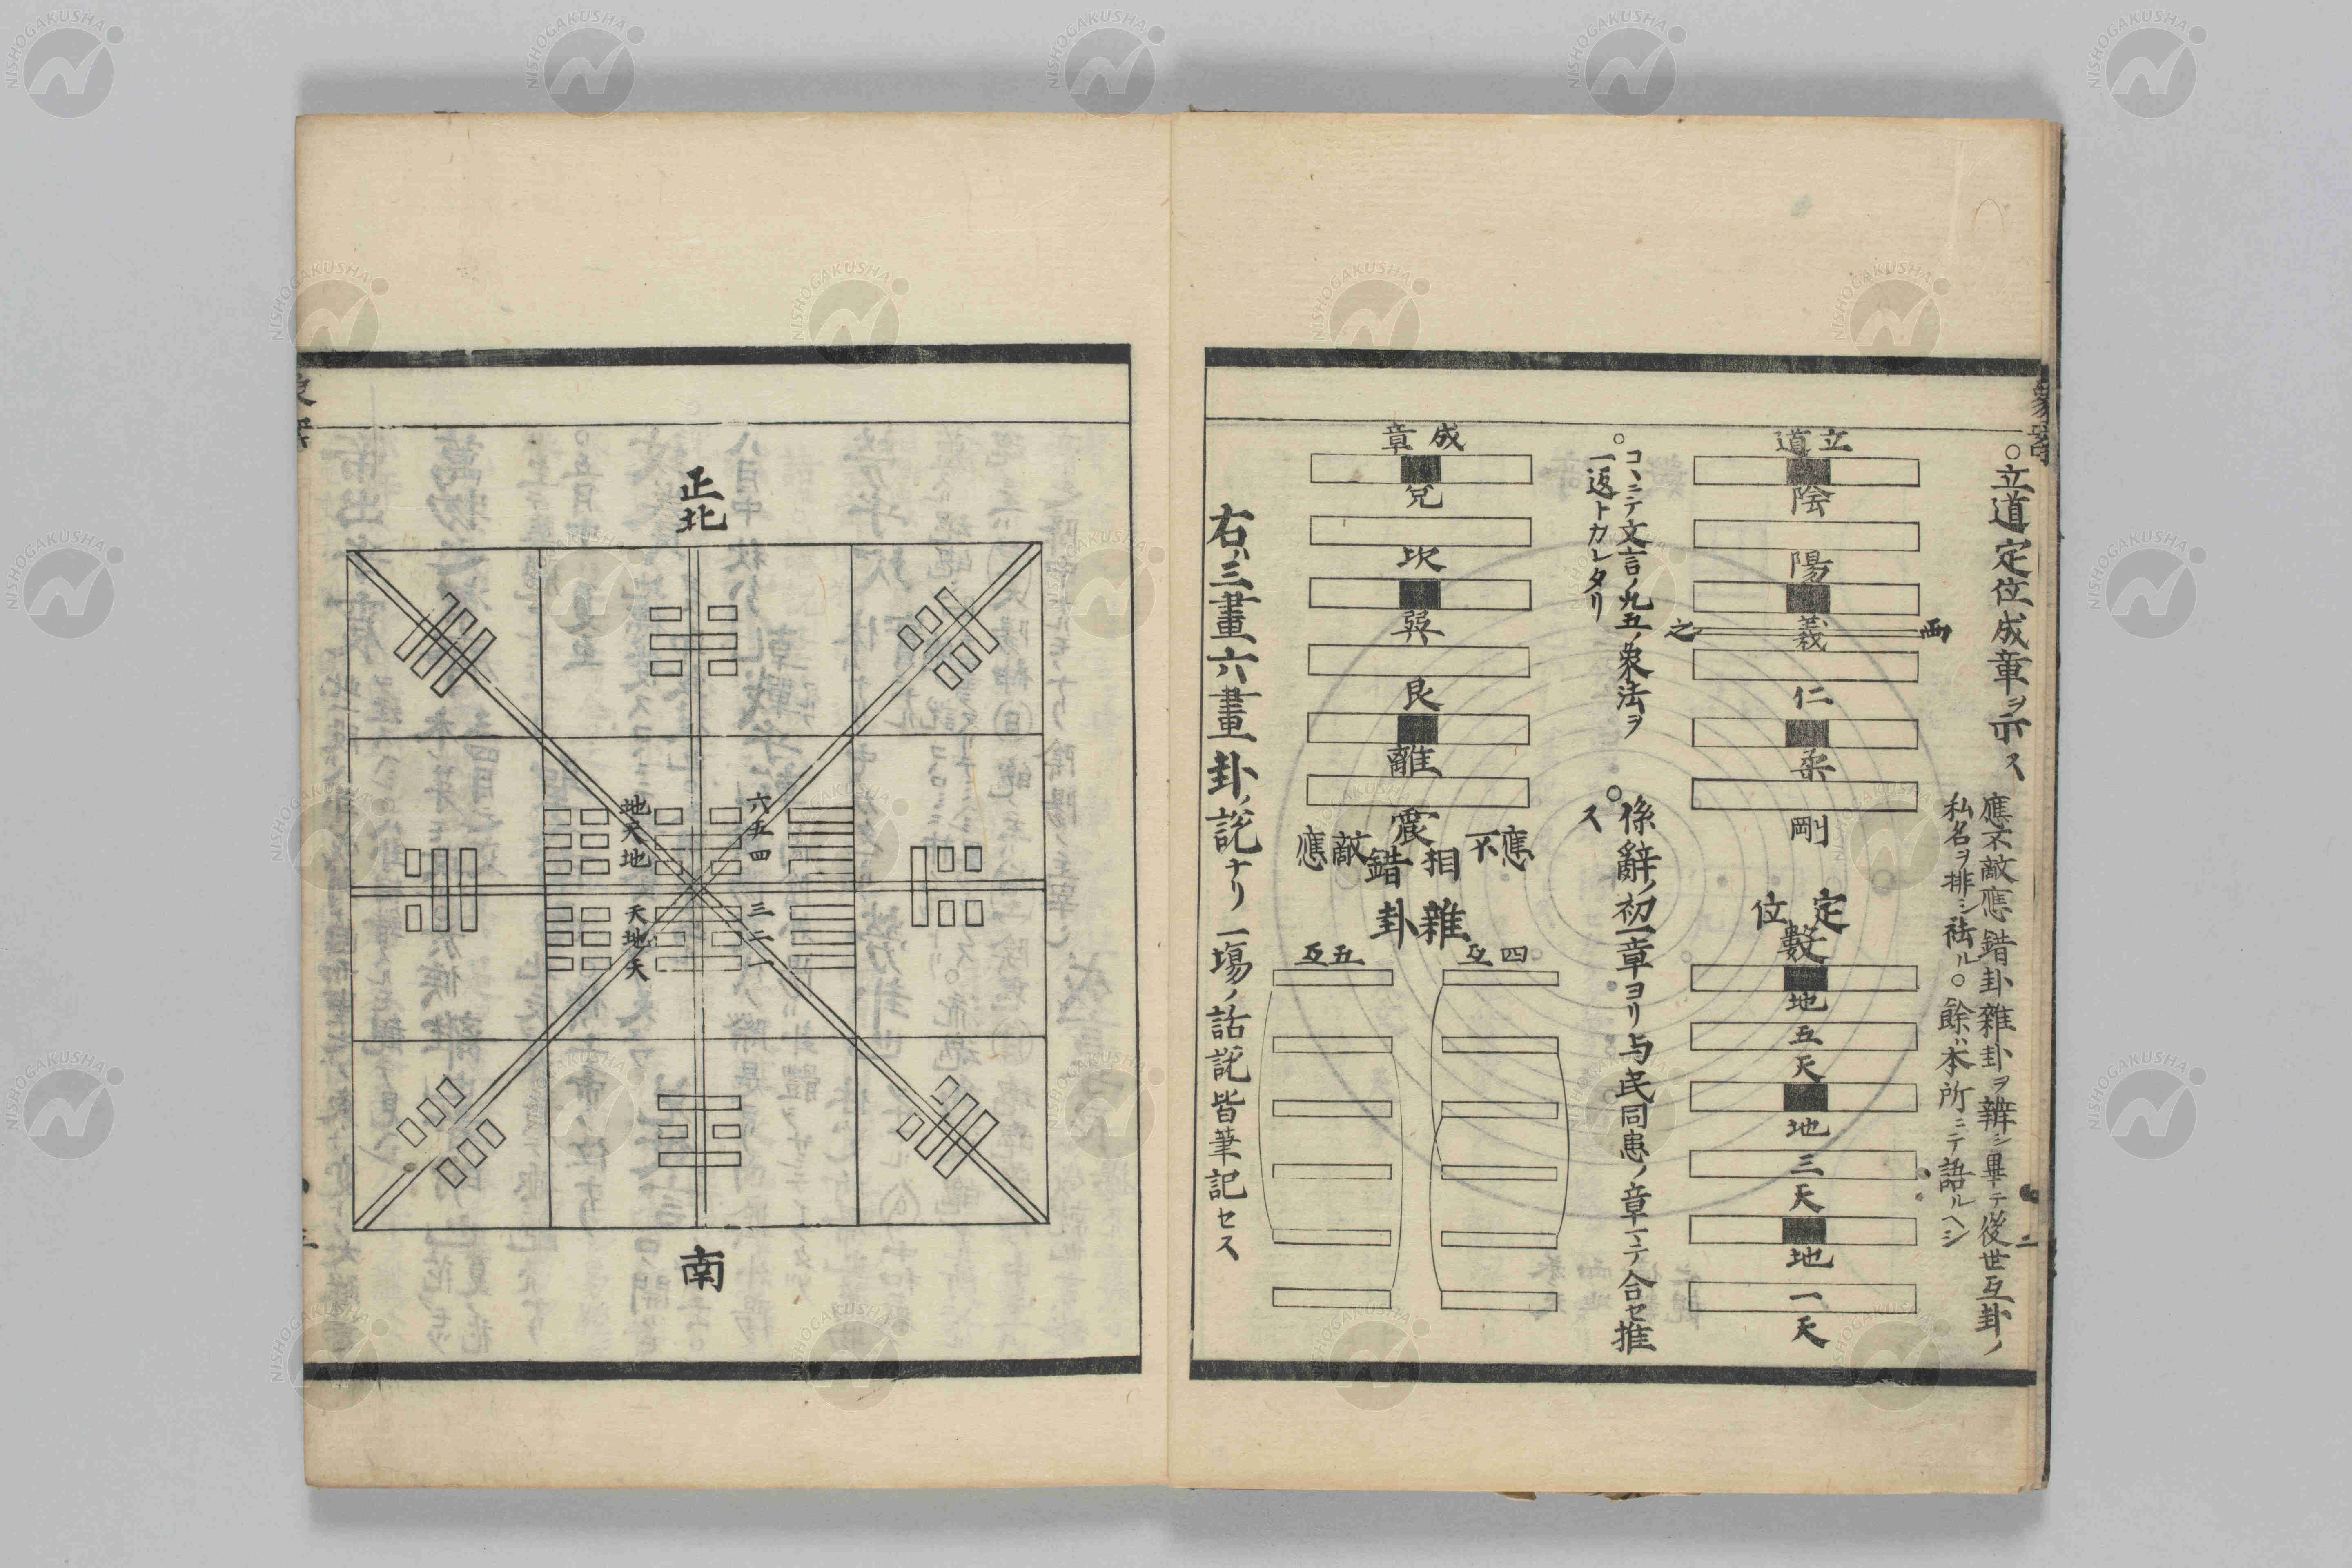 ○立道定位成章ヲ示ス
應不敵應錯卦雜卦ヲ辨シ畢テ後世互卦ノ
私名ヲ排シ袪ル○餘ハ本所ニテ語ルヘシ
立道
陰
陽
義
兩之
仁
柔
剛
定位
數
地
五
天
地
三
天
地
一
天
○コヽニテ文言ノ九五ノ象法ヲ
一返トカレタリ
○係辭ノ初一章ヨリ与民同患ノ章マテ合セ推
ス
成章
兌
坎
巽
艮
離
震
應不
相錯
敵應
雜卦
四互
五互
右ハ三畫六畫卦ノ説ナリ一塲ノ話説皆筆記セス
正北
六五四
三二一
地天地
天地天
南
NISHOGAKUSHA